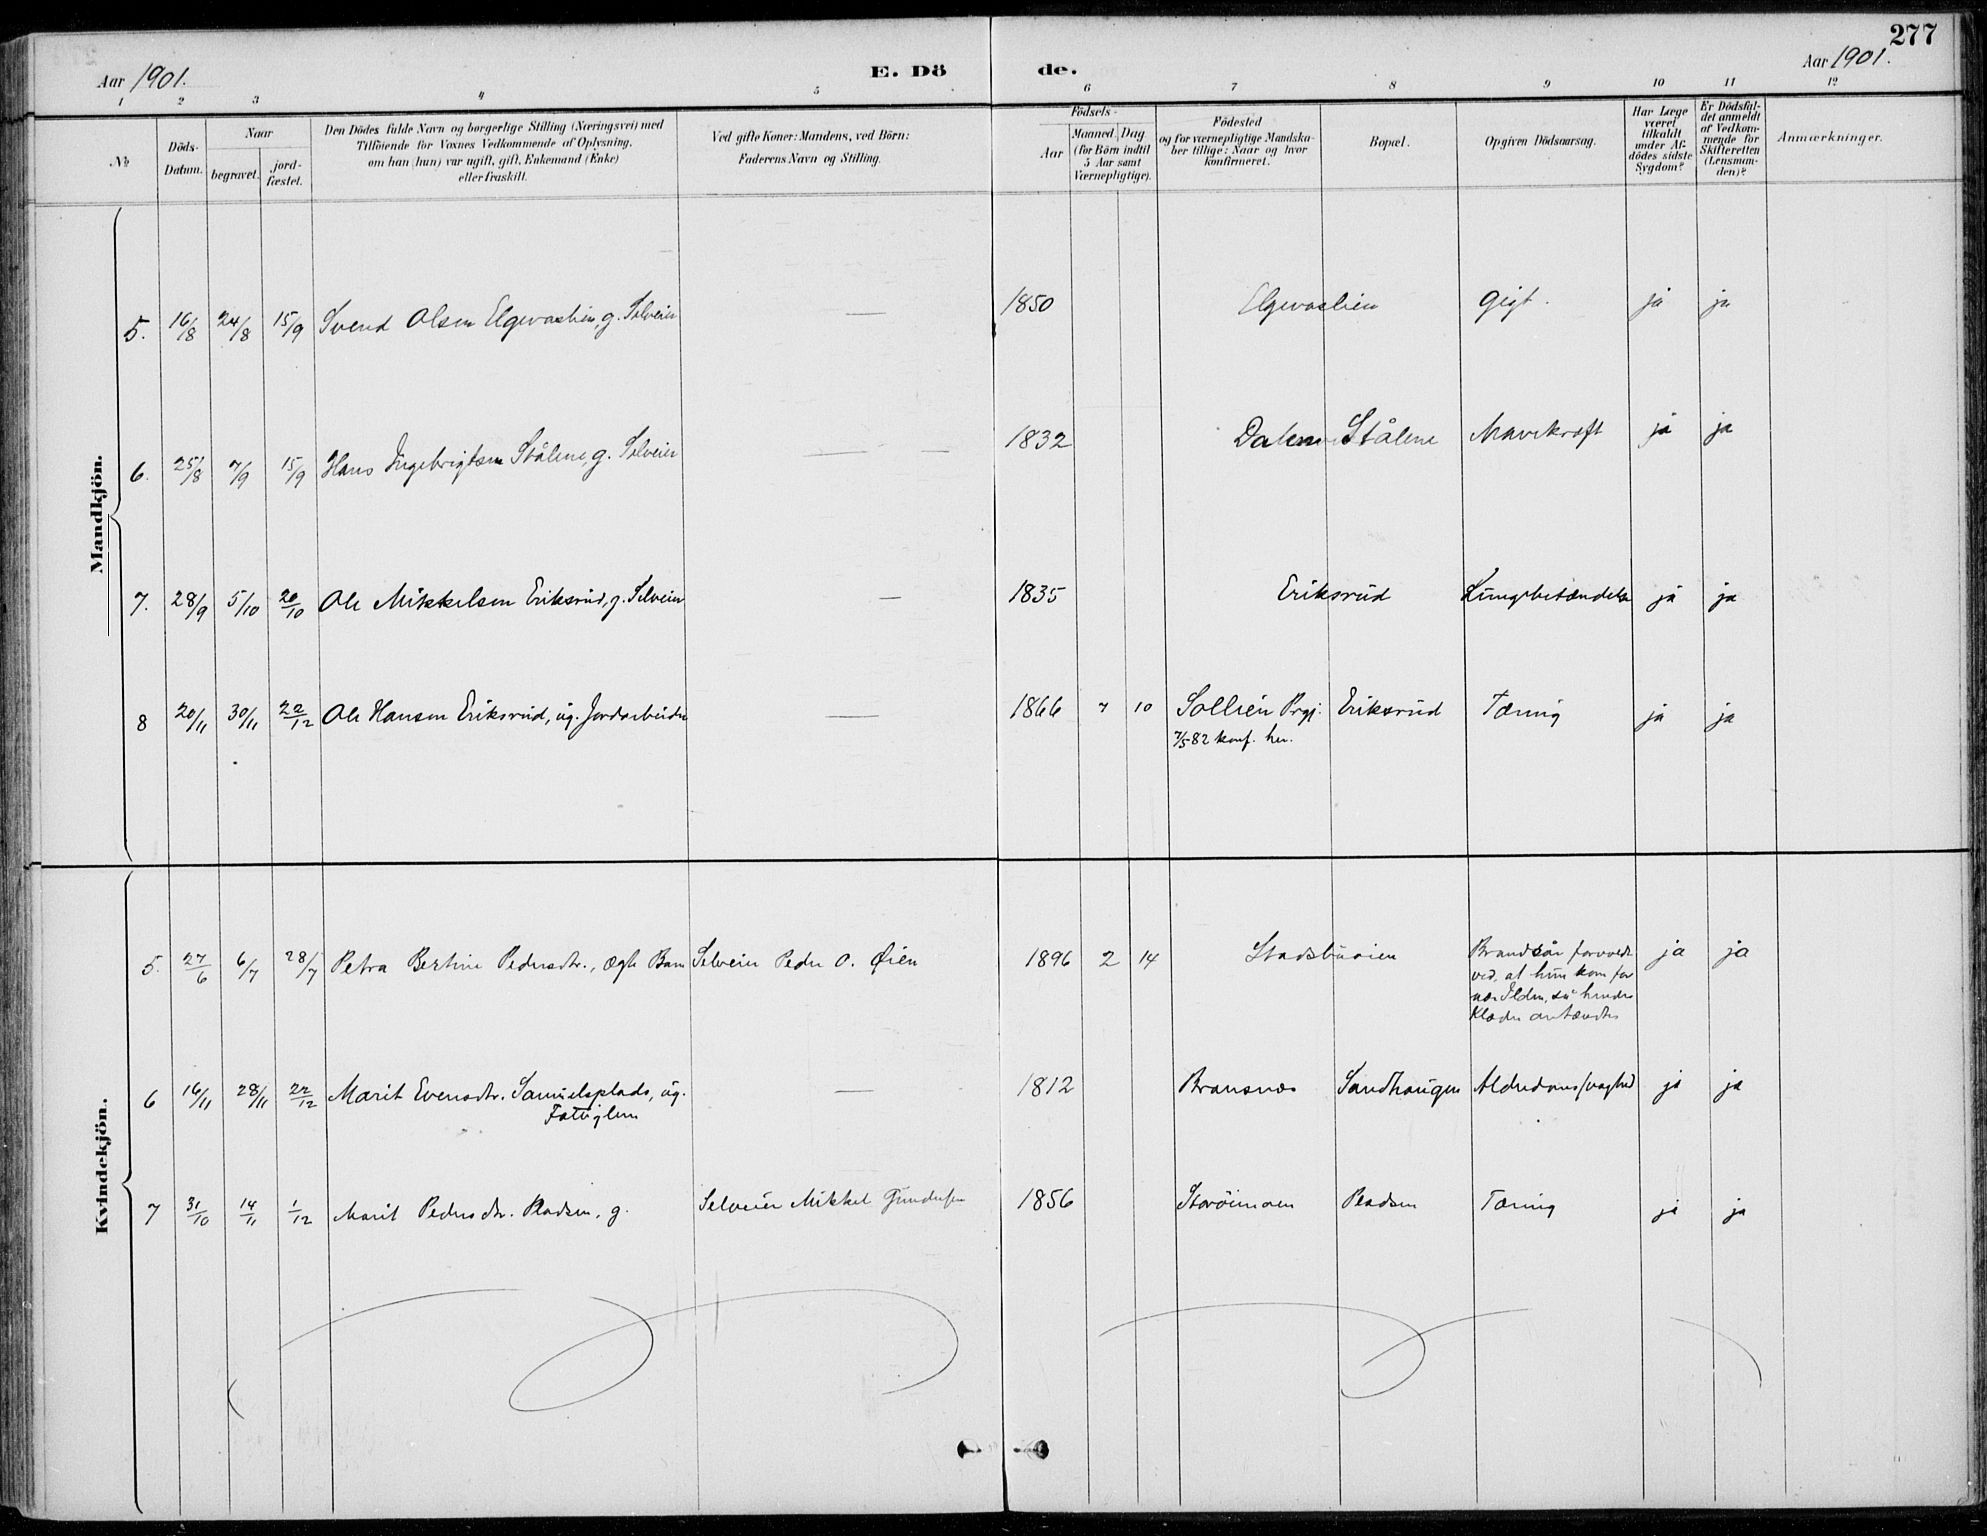 277
Aar 1901.
E. Dö
de.
Aar 1901.
1 2 3 4 5 6 7 8 9 10 11 12
No
Döds-
Datum.
Naar
begravet.
jord-
fæstet.
Den Dödes fulde Navn og borgerlige Stilling (Næringsvei) med
Tilföiende for Voxnes Vedkommende af Oplysning,
om han (hun) var ugift, gift, Enkemand (Enke)
eller fraskilt.
Ved gifte Koner: Mandens, ved Börn:
Faderens Navn og Stilling.
Födsels-
Aar
Maaned. Dag
(for Börn indtil
5 Aar samt
Værnepligtige).
Födested
og for værnepligtige Mandska-
ber tillige: Naar og hvor
konfirmeret.
Bopæl.
Opgiven Dödsaarsag.
Har Læge
været
tilkaldt
under Af-
dödes sidste
Sygdom?
Er Dödsfal-
det anmeldt
af Vedkom-
mende for
Skifteretten
(Lensman-
den)?
Anmærkninger.
Mandkjön.
5. 16/8 24/8 15/9 Svend Olsen Elgevaslien, g. Selveier — 1850 Elgevaslien Gigt. ja ja
6. 25/8 7/9 15/9 Hans Ingebrigtsen Stålene, g. Selveier — 1832 Dalen Stålene Mavekræft ja ja
7. 28/9 5/10 20/10 Ole Mikkelsen Eriksrud, g. Selveier — 1835 Eriksrud Lungebetændelse ja ja
8 20/11 30/11 22/12 Ole Hansen Eriksrud, ug. Jordarbeider — 1866 7 10 Sollien Prgj. Eriksrud Tæring ja ja
7/5 82 konf. her.
Kvindekjön.
5. 27/6 6/7 28/7 Petra Bertine Pedersdtr., ægte Barn Selveier Peder O. Øien 1896 2 14 Stadsbuøien Brandsår forvoldt ja ja
ved, at hun kom for
nær Ilden, så hendes
Klæder antændtes
6 16/11 28/11 22/12 Marit Evensdtr. Samuelsplads, ug. — 1812 Bransnes Sandhaugen Alderdomssvaghed ja ja
Fattiglem
7 31/10 14/11 1/12 Marit Pedersdtr. Pladsen, g. Selveier Mikkel Gundersen 1856 Storøimoen Pladsen Tæring ja ja